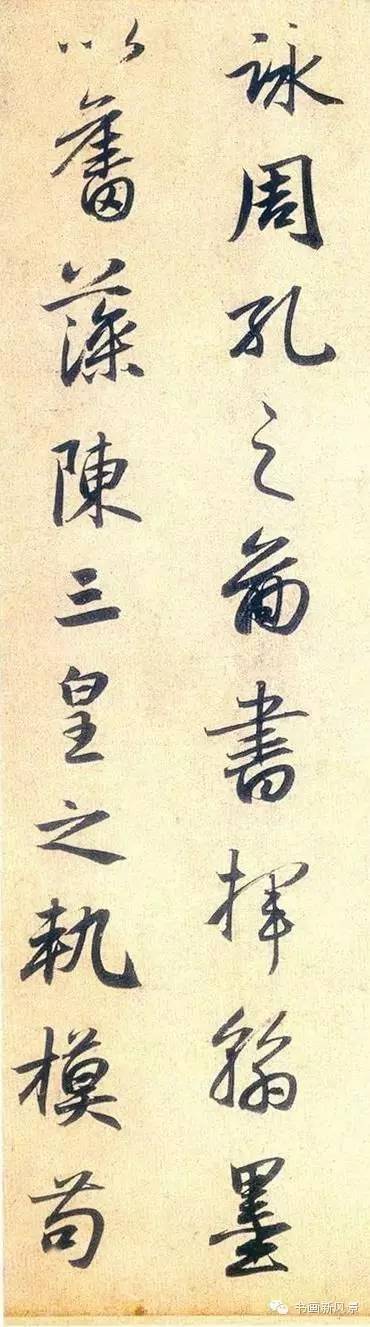 詠周孔之啚書揮翰墨
以奮藻陳三皇之軌模苟
书画新风景